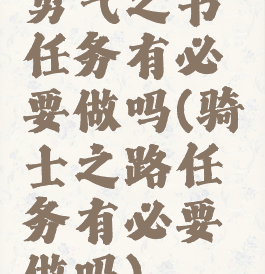 勇气之书
任务有必
要做吗(骑
士之路任
务有必要
做吗)